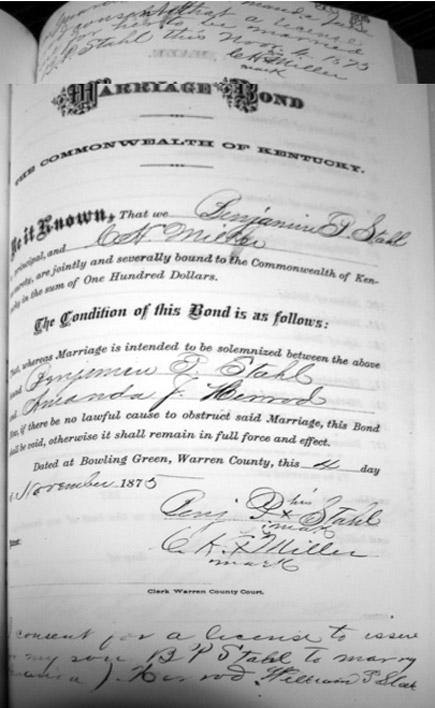 consent that a license
for her to be married
B P Stahl this Nov. 4 1875
C H Miller
mark
MARRIAGE BOND
THE COMMONWEALTH OF KENTUCKY.
Be it Known, That we Benjamine P. Stahl
principal, and C H. Miller
surety, are jointly and severally bound to the Commonwealth of Ken-
tucky in the sum of One Hundred Dollars.
The Condition of this Bond is as follows:
That, whereas Marriage is intended to be solemnized between the above
bound Benjemen P. Stahl
and Amanda J. Herrod
Now, if there be no lawful cause to obstruct said Marriage, this Bond
shall be void, otherwise it shall remain in full force and effect.
Dated at Bowling Green, Warren County, this 4 day
of November 1875
Benj P x his Stahl
mark
C H x Miller
mark
Clerk Warren County Court.
I consent for a license to issue
for my son B P Stahl to marry
J. Herrod William P Stahl